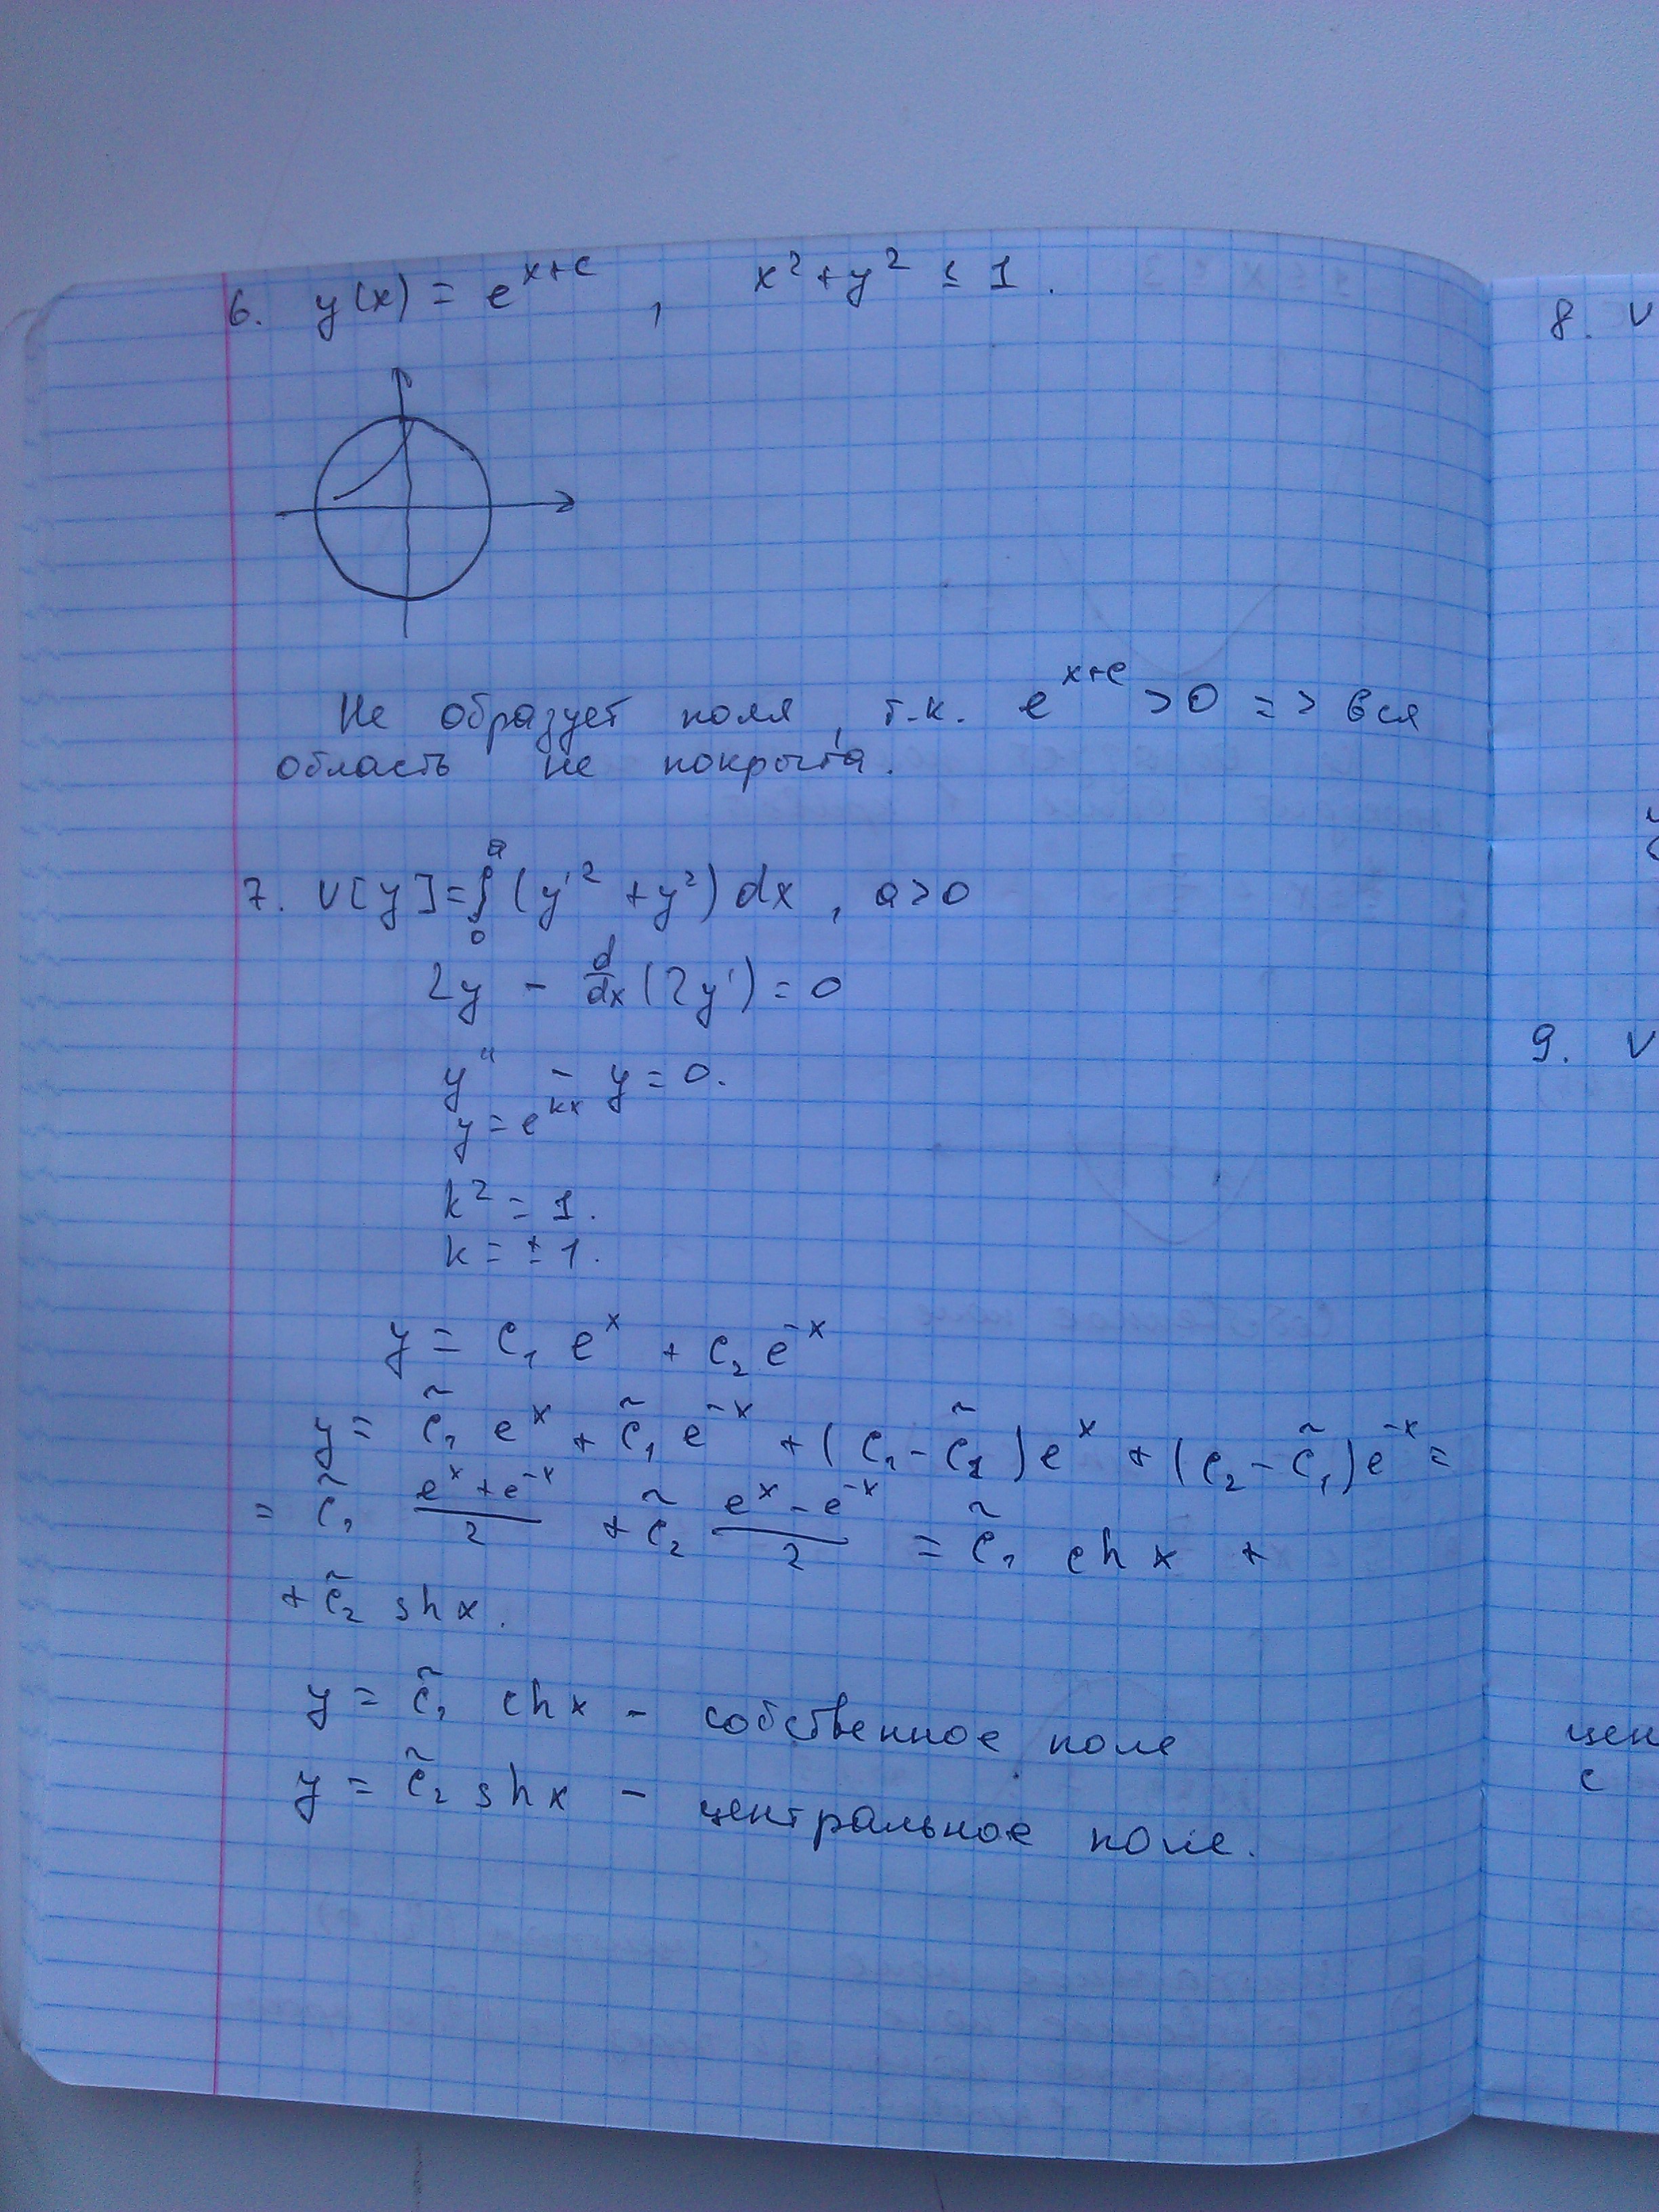 6. y(x) = e^{x+c} , x² + y² ≤ 1.
Не образует поля, т.к. e^{x+c} > 0 => вся
область не покрыта.
7. V[y] = ∫₀ᵃ (y'² + y²) dx , a > 0
2y - d/dx (2y') = 0
y'' - y = 0.
y = e^{kx}
k² = 1.
k = ± 1.
y = C₁ e^x + C₂ e^{-x}
y = C̃₁ e^x + C̃₁ e^{-x} + (C₁ - C̃₁) e^x + (C₂ - C̃₁) e^{-x} =
= C̃₁ (e^x + e^{-x})/2 + C̃₂ (e^x - e^{-x})/2 = C̃₁ ch x +
+ C̃₂ sh x.
y = C̃₁ ch x - собственное поле
y = C̃₂ sh x - центральное поле.
8. V
9. V
цен
с